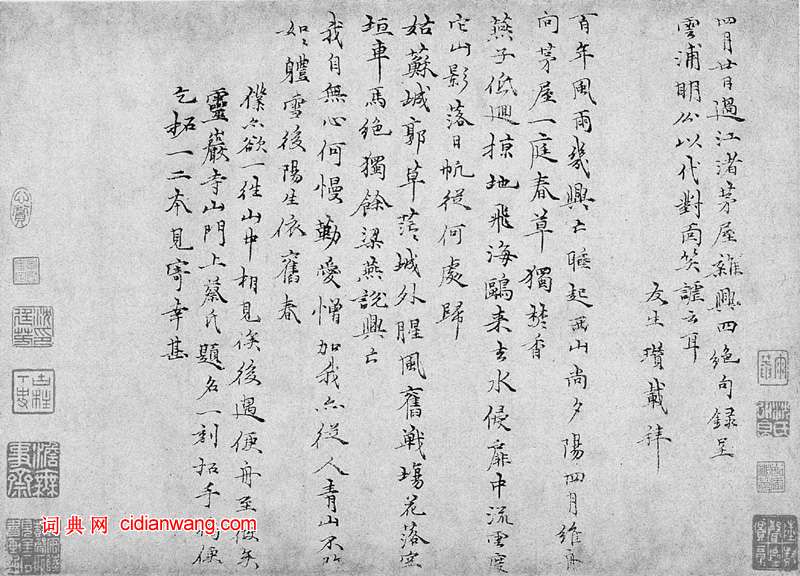 四月廿日過江渚茅屋雜興四絕句錄呈
雲浦明公以代對面笑謔云耳
友生瓚載拜
百年風雨幾興亡睡起西山尚夕陽四月維舟
向茅屋一庭春草獨焚香
燕子低迴掠地飛海鷗來去水侵扉中流雲度
它山影落日帆從何處歸
姑蘇城郭草茫茫城外腥風舊戰場花落空
垣車馬絕獨餘梁燕說興亡
我自無心何慢勤愛憎加我亦從人青山不
如如體雪後陽生依舊春
僕亦欲一往山中相見俟後遇便舟至彼矣
靈巖寺山門上蔡氏題名一刻拓手便
乞拓一二本見寄幸甚
词典网 cidianwang.com